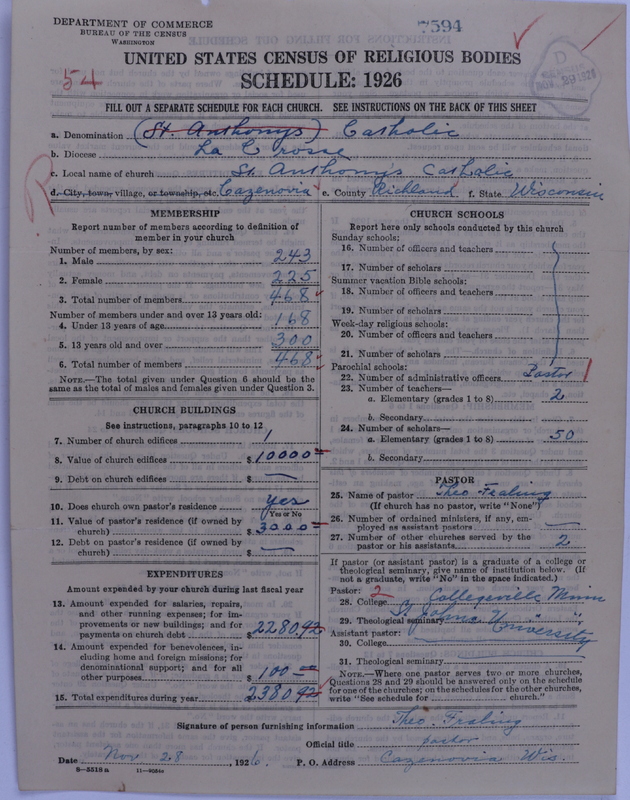 DEPARTMENT OF COMMERCE
BUREAU OF THE CENSUS
WASHINGTON
7594
54
D
NOV 29 1926
UNITED STATES CENSUS OF RELIGIOUS BODIES
SCHEDULE: 1926
FILL OUT A SEPARATE SCHEDULE FOR EACH CHURCH. SEE INSTRUCTIONS ON THE BACK OF THIS SHEET
a. Denomination (St. Anthonys) Catholic
b. Diocese La Crosse
c. Local name of church St. Anthony's Catholic
R
d. City, town, village, or township, etc. Cazenovia e. County Richland f. State Wisconsin
MEMBERSHIP
Report number of members according to definition of member in your church
Number of members, by sex:
1. Male 243
2. Female 225
3. Total number of members 468
Number of members under and over 13 years old:
4. Under 13 years of age 168
5. 13 years old and over 300
6. Total number of members 468
NOTE.—The total given under Question 6 should be the same as the total of males and females given under Question 3.
CHURCH BUILDINGS
See instructions, paragraphs 10 to 12
7. Number of church edifices 1
8. Value of church edifices $ 10000
9. Debt on church edifices $ —
10. Does church own pastor's residence yes
Yes or No
11. Value of pastor's residence (if owned by church) $ 3000
12. Debt on pastor's residence (if owned by church) $ —
EXPENDITURES
Amount expended by your church during last fiscal year
13. Amount expended for salaries, repairs, and other running expenses; for improvements or new buildings; and for payments on church debt $ 2280.92
14. Amount expended for benevolences, including home and foreign missions; for denominational support; and for all other purposes $ 100
15. Total expenditures during year $ 2380.92
CHURCH SCHOOLS
Report here only schools conducted by this church
Sunday schools:
16. Number of officers and teachers
17. Number of scholars
Summer vacation Bible schools:
18. Number of officers and teachers
19. Number of scholars
Week-day religious schools:
20. Number of officers and teachers
21. Number of scholars
Parochial schools:
22. Number of administrative officers Pastor 1
23. Number of teachers—
a. Elementary (grades 1 to 8) 2
b. Secondary
24. Number of scholars—
a. Elementary (grades 1 to 8) 50
b. Secondary
PASTOR
25. Name of pastor Theo. Fraling
(If church has no pastor, write "None")
26. Number of ordained ministers, if any, employed as assistant pastors —
27. Number of other churches served by the pastor or his assistants 2
If pastor (or assistant pastor) is a graduate of a college or theological seminary, give name of institution below. (If not a graduate, write "No" in the space indicated.)
Pastor: 2
28. College Collegeville Minn
29. Theological seminary St. Johns University " "
Assistant pastor:
30. College
31. Theological seminary
NOTE.—Where one pastor serves two or more churches, Questions 28 and 29 should be answered only on the schedule for one of the churches; on the schedules for the other churches, write "See schedule for church."
Signature of person furnishing information Theo. Fraling
Official title pastor
Date Nov 28, 1926. P. O. Address Cazenovia Wis.
8—5518a